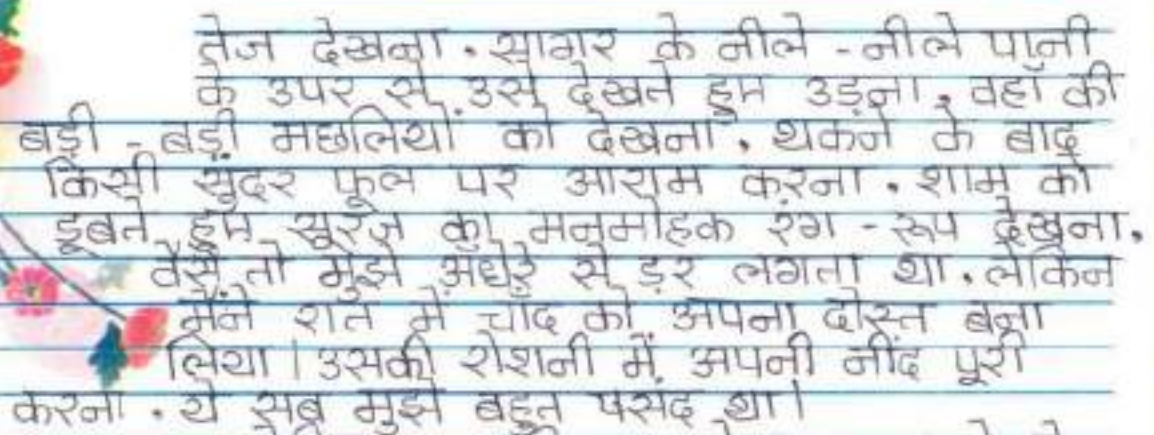 तेज देखना. सागर के नीले - नीले पानी
के उपर से उसे देखते हुए उड़ना, वहाँ की
बड़ी - बड़ी मछलियों को देखना, थकने के बाद
किसी सुंदर फूल पर आराम करना. शाम को
डूबते हुए सूरज का मनमोहक रंग - रूप देखना.
वैसे तो मुझे अंधेरे से ड़र लगता था. लेकिन
मैंने रात में चाँद को अपना दोस्त बना
लिया । उसकी रोशनी में अपनी नींद पूरी
करना. ये सब मुझे बहुत पसंद था।